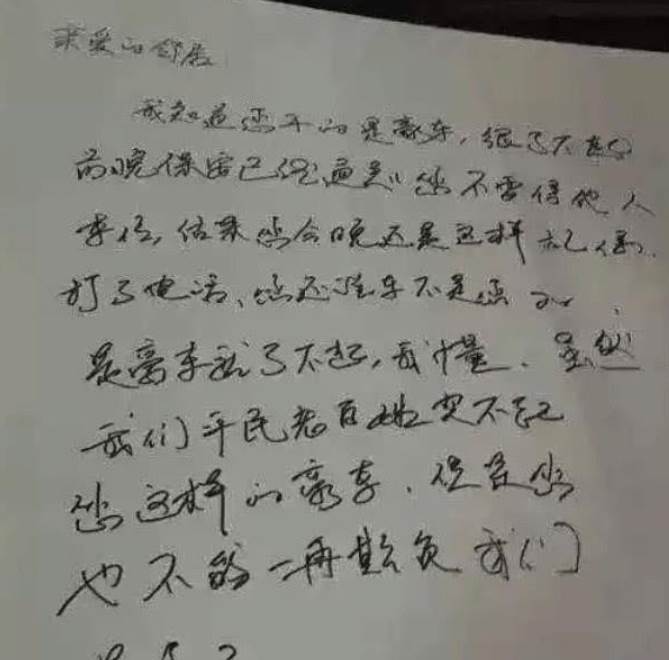 亲爱的邻居
我知道您开的是豪车，很了不起
前晚保安已经通知您不要停他人
车位，结果您今晚还是这样
打了电话、您还说车不是您的
是豪车就了不起，我懂、虽然
我们平民老百姓买不起
您这样的豪车、但是您
也不能一再欺负我们